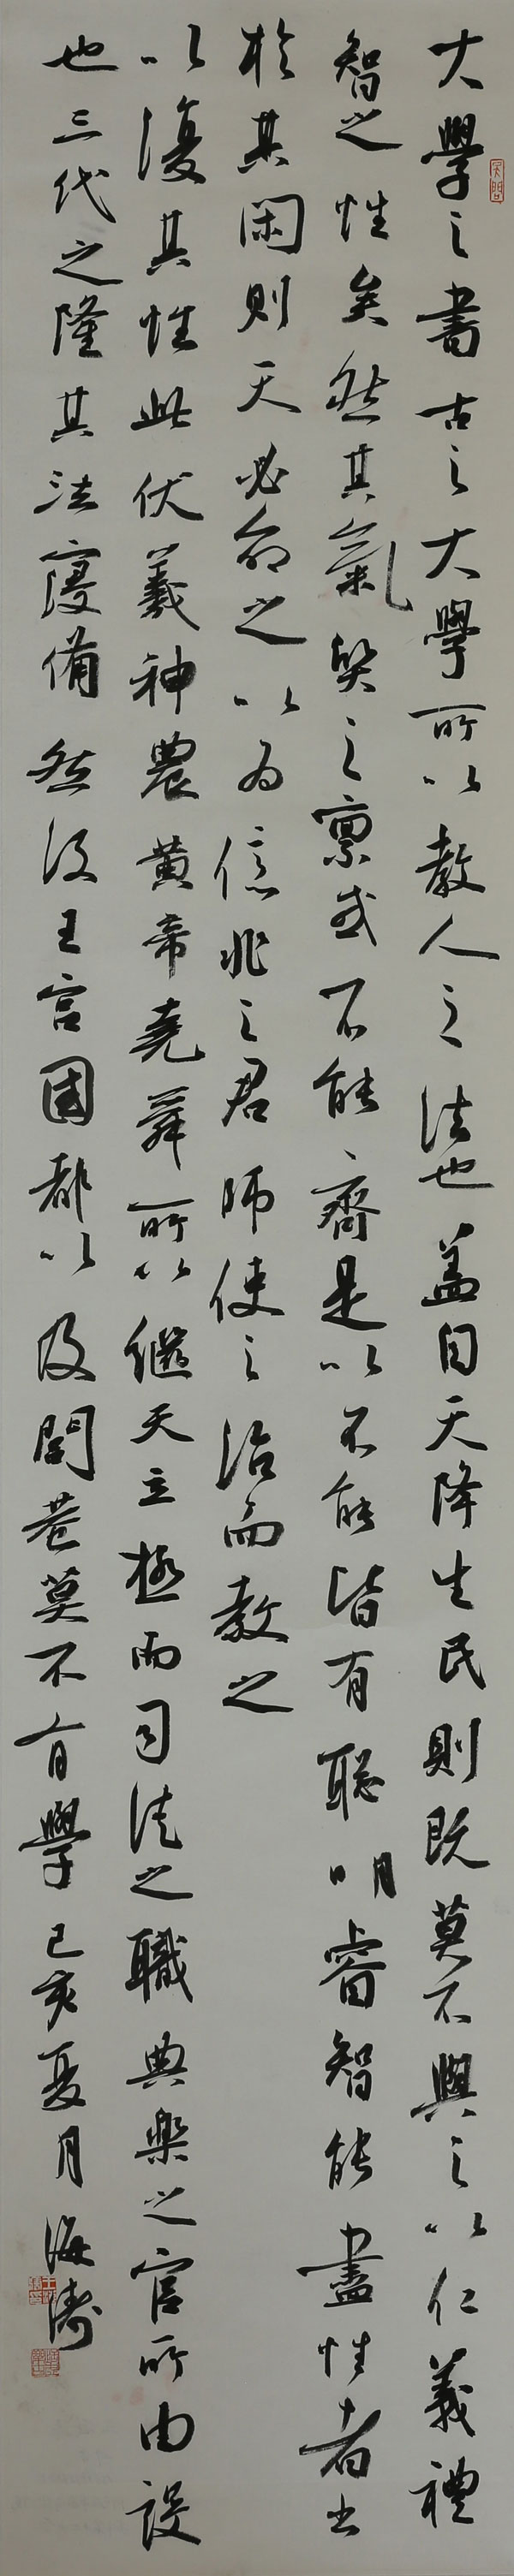 大學之書古之大學所以教人之法也蓋自天降生民則既莫不與之以仁義禮
智之性矣然其氣質之稟或不能齊是以不能皆有聰明睿智能盡性者出
於其閑則天必命之以為億兆之君師使之治而教之
以復其性此伏羲神農黃帝堯舜所以繼天立極而司徒之職典樂之官所由設
也三代之隆其法寖備然後王宮國都以及閭巷莫不有學己亥夏月海濤